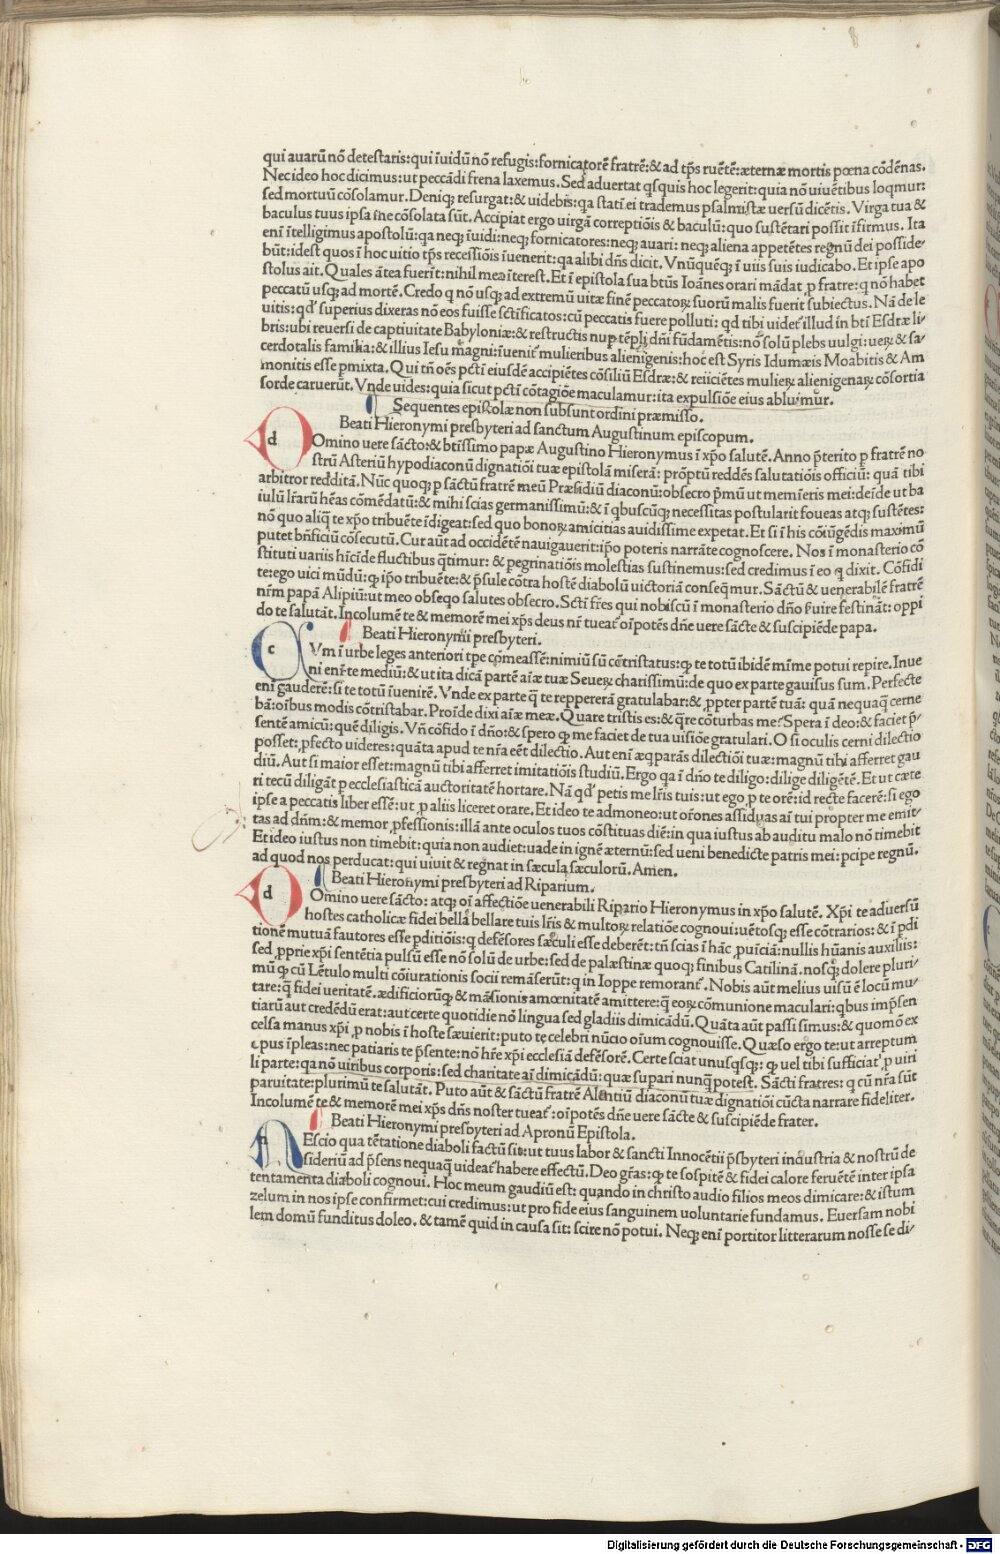 qui auarū nō detestaris:qui īuidū nō refugis:fornicatorē fratrē:& ad tp̄s ruētē:æternæ mortis pœna cōdēnas.
Nec ideo hoc dicimus:ut peccādi frena laxemus. Sed aduertat qſquis hoc legerit:quia nō uiuētibus loqmur:
sed mortuū cōsolamur. Deniqꝫ resurgat:& uidebis:qa statī ei trademus psalmistæ uersū dicētis. Virga tua &
baculus tuus ipsa me cōsolata sūt. Accipiat ergo uirgā correptiōis & baculū:quo sustētari possit īfirmus. Ita
enī ītelligimus apostolū:qa neqꝫ īuidi:neqꝫ fornicatores:neqꝫ auari: neqꝫ aliena appetētes regnū dei posside-
būt:idest quos ī hoc uitio tp̄s recessiōis īuenerit:qa alibi dn̄s dicit. Vnūquēqꝫ ī uiis suis iudicabo. Et ipse apo
stolus ait. Quales ātea fuerīt:nihil mea īterest. Et ī epistola sua btūs Ioānes orari mādat ꝓ fratre:q nō habet
peccatū usqꝫ ad mortē. Credo q nō usqꝫ ad extremū uitæ finē peccatoꝝ suorū malis fuerit subiectus. Nā de le
uitis:qd' superius dixeras nō eos fuisse sctificatos:cū peccatis fuere polluti: qd tibi uidet illud in btī Esdræ li-
bris:ubi reuersi de captiuitate Babyloniæ:& restructis nuꝑ tēpli dn̄i fūdamētis:nō solū plebs uulgi:ueꝝ & sa-
cerdotalis familia:& illius Iesu magni:īuenit mulieribus alienigenis:hoc est Syris Idumæis Moabitis & Am
monitis esse ꝑmixta. Qui tn̄ oēs pctī eiusdē accipiētes cōsiliū Esdræ:& reiiciētes mulieꝝ alienigenaꝝ cōsortia
sorde caruerūt. Vnde uides:quia sicut pctī cōtagiōe maculamur:ita expulsiōe eius abluimur.
Sequentes epistolæ non subsunt ordini præmisso.
Beati Hieronymi presbyteri ad sanctum Augustinum episcopum.
dOmino uere sācto:& btissimo papæ Augustino Hieronymus ī xp̄o salutē. Anno p̄terito ꝑ fratrē no
strū Asteriū hypodiaconū dignatiōi tuæ epistolā miserā: prōptū reddēs salutatiōis officiū: quā tibi
arbitror redditā. Nūc quoqꝫ ꝑ sāctū fratrē meū Præsidiū diaconū:obsecro p̄mū ut memīeris mei:deīde ut ba
iulū lr̄arū hēas cōmēdatū:& mihi scias germanissimū:& ī qbuscūqꝫ necessitas postularit foueas atqꝫ sustētes:
nō quo aliq̄ te xp̄o tribuēte īdigeat:sed quo bonoꝝ amicitias auidissime expetat. Et si ī his cōiūgēdis maximū
putet bn̄ficiū cōsecutū. Cur aūt ad occidētē nauigauerit:ip̄o poteris narrāte cognoscere. Nos ī monasterio cō
stituti uariis hīcīde fluctibus q̄timur: & pegrinatiōis molestias sustinemus:sed credimus ī eo q dixit. Cōfidi
te:ego uici mūdū:ꝙ ip̄o tribuēte:& p̄sule cōtra hostē diabolū uictoriā conseqmur. Sāctū & uenerabilē fratrē
nr̄m papā Alipiū:ut meo obseqo salutes obsecro. Scti fr̄es qui nobiscū ī monasterio dn̄o ẜuire festināt: oppi
do te salutāt. Incolumē te & memorē mei xp̄s deus nr̄ tueat oīpotēs dn̄e uere sācte & suscipiēde papa.
Beati Hieronymi presbyteri.
cVm ī urbe leges anteriori tp̄e cōmeassē:nimiū sū cōtristatus:ꝙ te totū ibidē mīme potui repire. Inue
ni enī te mediū:& ut ita dicā partē aīæ tuæ Seueꝝ charissimū:de quo ex parte gauisus sum. Perfecte
enī gauderē:si te totū īuenirē. Vnde ex parte q̄ te reppererā gratulabar:& ꝓpter partē tuā: quā nequaq̄ cerne
bā:oībus modis cōtristabar. Proīde dixi aīæ meæ. Quare tristis es:& q̄re cōturbas me? Spera ī deo:& faciet p̄-
sentē amicū:quē diligis. Vn̄ cōfido ī dn̄o:& spero ꝙ me faciet de tua uisiōe gratulari. O si oculis cerni dilectio
posset:ꝓfecto uideres:quāta apud te nr̄a eēt dilectio. Aut enī æqparās dilectiōi tuæ:magnū tibi afferret gau
diū. Aut si maior esset:magnū tibi afferret imitatiōis studiū. Ergo qa ī dn̄o te diligo:dilige diligētē. Et ut cæte
ri tecū diligāt ꝑ ecclesiasticā auctoritatē hortare. Nā qd' petis me lr̄is tuis:ut ego ꝓ te orē:id recte facerē:si ego
ipse a peccatis liber essē:ut ꝓ aliis liceret orare. Et ideo te admoneo:ut or̄ones assiduas aī tui propter me emit-
tas ad dn̄m:& memor ꝓfessionis:illā ante oculos tuos cōstituas diē:in qua iustus ab auditu malo nō timebit
Et ideo iustus non timebit:quia non audiet:uade in ignē æternū:sed ueni benedicte patris mei:pcipe regnū.
ad quod nos perducat:qui uiuit & regnat in sæcula sæculorū. Amen.
Beati Hieronymi presbyteri ad Riparium.
dOmino uere sācto: atqꝫ oī affectiōe uenerabili Ripario Hieronymus in xp̄o salutē. Xp̄i te aduersū
hostes catholicæ fidei bella bellare tuis lr̄is & multoꝝ relatiōe cognoui:uētosqꝫ esse cōtrarios:& ī pdi
tionē mutuā fautores esse pditiōis:q defēsores sæculi esse deberēt:tn̄ scias ī hāc ꝓuīciā:nullis hūanis auxiliis:
sed ꝓprie xp̄i sentētia pulsū esse nō solū de urbe:sed de palæstinæ quoqꝫ finibus Catilinā. nosqꝫ dolere pluri-
mū ꝙ cū Lētulo multi cōiurationis socii remāserūt:q in Ioppe remorant. Nobis aūt melius uisū ē locū mu-
tare:q̄ fidei ueritatē. ædificiorūqꝫ & māsionis amœnitatē amittere:q̄ eoꝝ cōmunione maculari:qbus impn̄sen
tiarū aut credēdū erat:aut certe quotidie nō lingua sed gladiis dimicādū. Quāta aūt passi simus:& quomō ex
celsa manus xp̄i ꝓ nobis ī hoste sæuierit:puto te celebri nūcio oīum cognouisse. Quæso ergo te:ut arreptum
opus īpleas:nec patiaris te p̄sente:nō hr̄e xp̄i ecclesiā defēsorē. Certe sciat unusqsqꝫ: ꝙ uel tibi sufficiat ꝓ uiri
li parte:qa nō uiribus corporis:sed charitate aī dimicādū:quæ supari nunq̄ potest. Sācti fratres: q cū nr̄a sūt
paruitate:plurimū te salutāt. Puto aūt & sāctū fratrē Alentiū diaconū tuæ dignatiōi cūcta narrare fideliter.
Incolumē te & memorē mei xp̄s dn̄s noster tueat:oīpotēs dn̄e uere sācte & suscipiēde frater.
Beati Hieronymi presbyteri ad Apronū Epistola.
nEscio qua tētatione diaboli factū sit:ut tuus labor & sancti Innocētii p̄sbyteri industria & nostrū de
sideriū ad p̄sens nequaq̄ uideat habere effectū. Deo gr̄as:ꝙ te sospitē & fidei calore feruētē inter ipsa
tentamenta diaboli cognoui. Hoc meum gaudiū est: quando in christo audio filios meos dimicare:& istum
zelum in nos ipse confirmet:cui credimus:ut pro fide eius sanguinem uoluntarie fundamus. Euersam nobi
lem domū funditus doleo. & tamē quid in causa sit: scire nō potui. Neqꝫ enī portitor litterarum nosse se di-
Digitalisierung gefördert durch die Deutsche Forschungsgemeinschaft - DFG